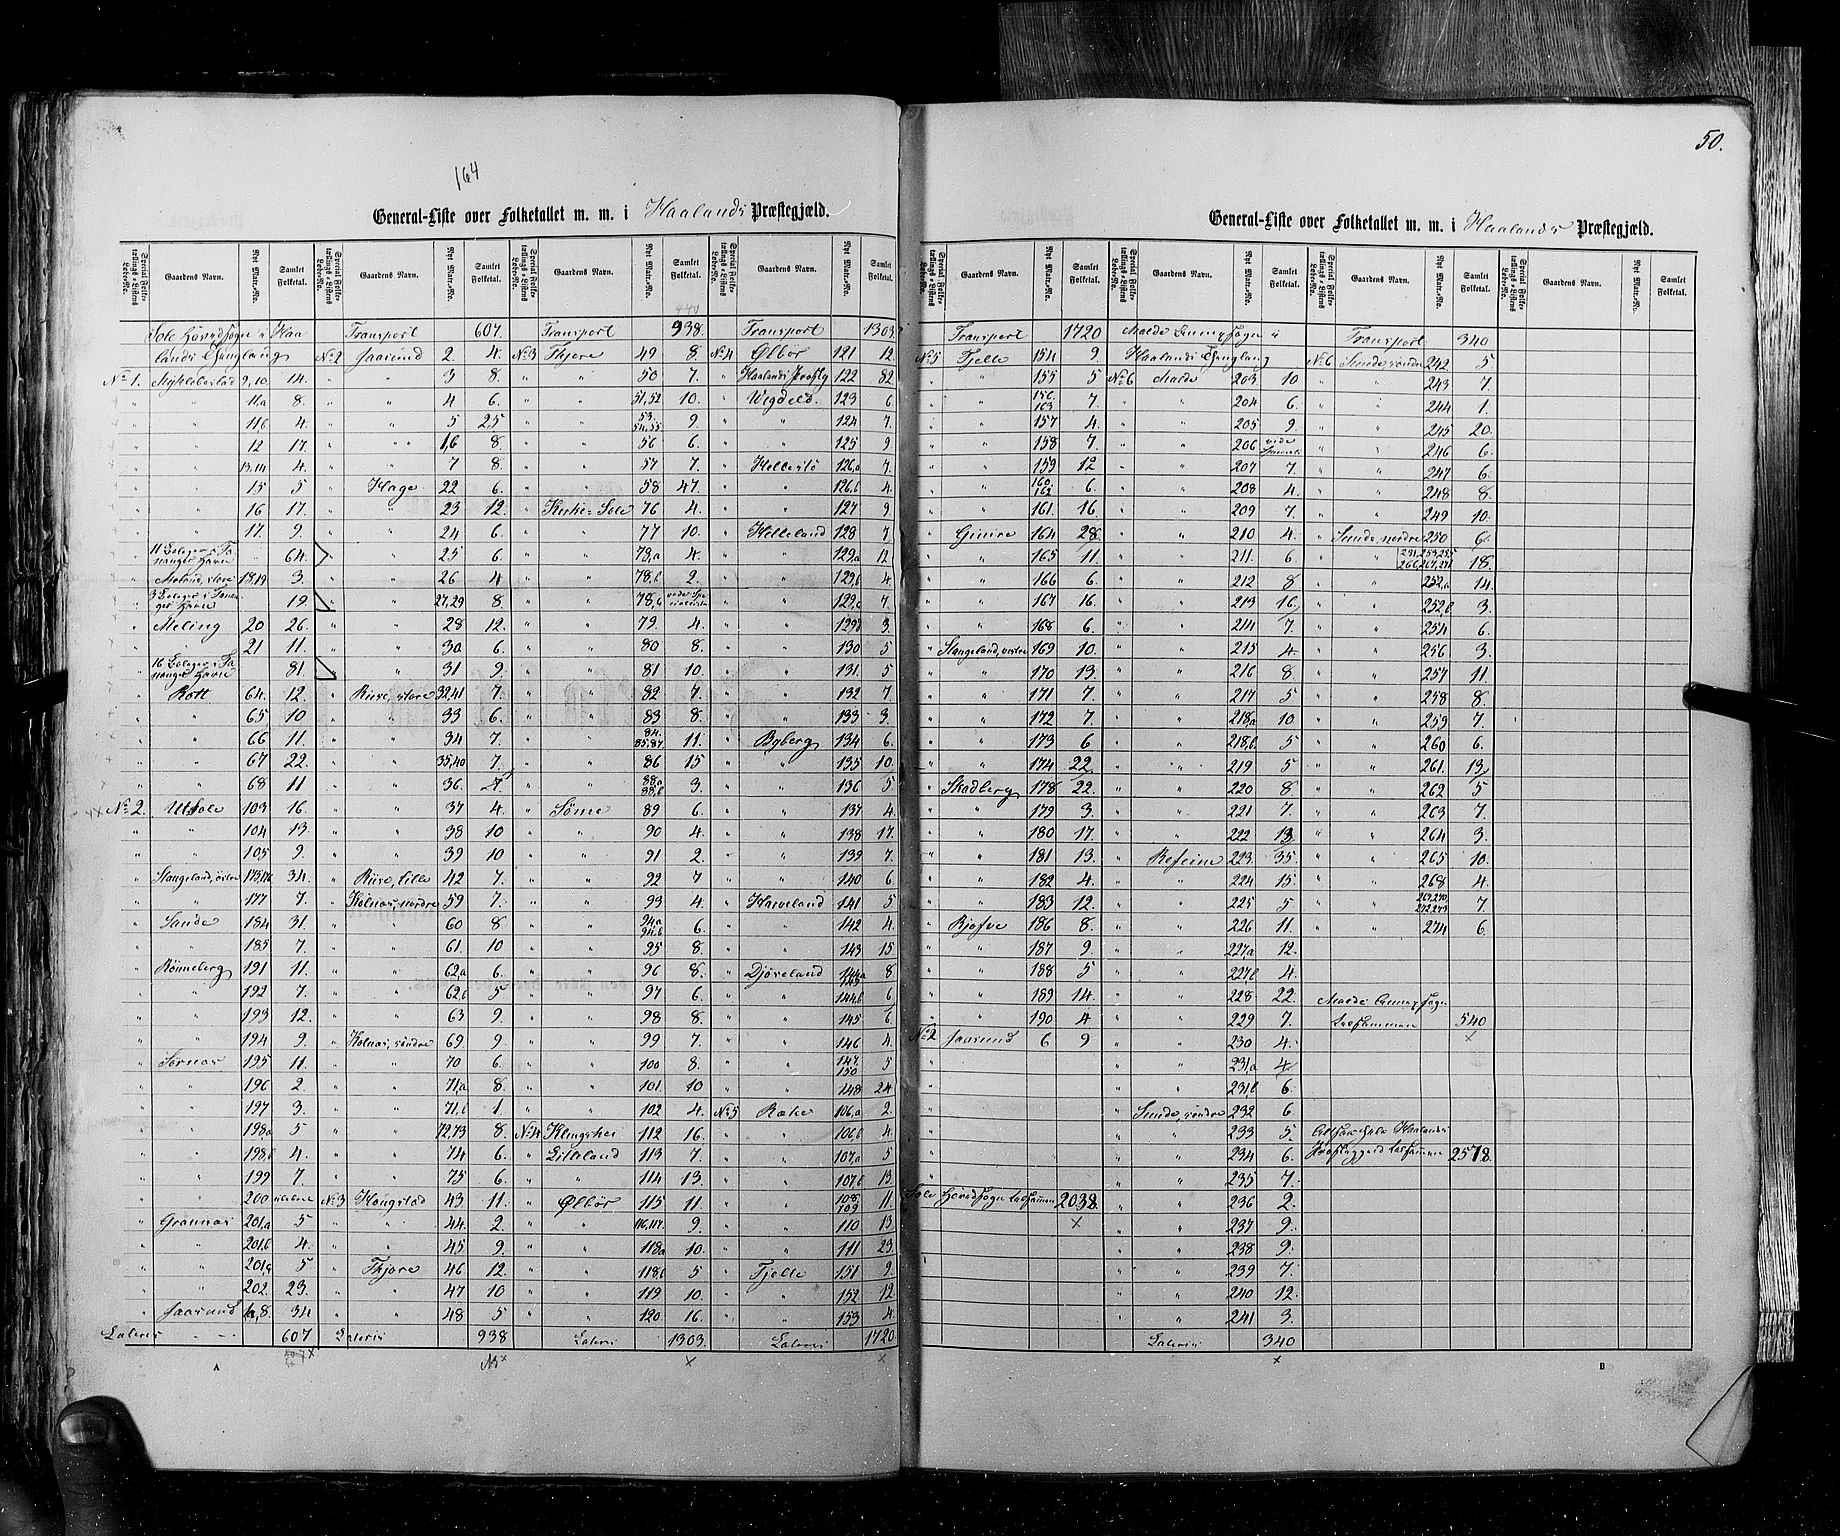 164
General-Liste over Folketallet m. m. i Haalands Præstegjæld.
Special Folketællings-Listens Løbe-No. Gaardens Navn. Nyt Matr.-No. Samlet Folketal. Special Folketællings-Listens Løbe-No. Gaardens Navn. Nyt Matr.-No. Samlet Folketal. Special Folketællings-Listens Løbe-No. Gaardens Navn. Nyt Matr.-No. Samlet Folketal. Special Folketællings-Listens Løbe-No. Gaardens Navn. Nyt Matr.-No. Samlet Folketal.
Sole Hovedsogn i Haa
lands Thinglaug
No 1. Myklebostad 9,10. 14.
" " 11,a 8.
" " 11b 4.
" " 12 17.
" " 13,14 4.
" " 15 5
" " 16 17.
" " 17. 9.
" 11 Boliger i Tanangers Havn " 64.
" Melnæs, store 18,19 3.
" 3 Boliger i Tananger Havn 19.
" Meling 20 26.
" " 21 11.
" 16 Boliger i Tananger Havn 81.
" Rott 64. 12.
" " 65 10
" " 66 11.
" " 67 22.
" " 68 11
No 2. Utsole 103 16.
" " 104 13.
" " 105 9.
" Stangeland, østre 175,176 34.
" " 177 7.
" Sande 184 31.
" " 185 7.
" Rønneberg 191 11.
" " 192 7.
" " 193 12.
" " 194 9.
" Sørnæs 195 11.
" " 196 2.
" " 197 3.
" " 198,a 5
" " 198,b 4.
" " 199 7.
" " 200
" Grannæs 201,a 5
" " 201,b 4.
" " 201,c 5
" " 202. 23.
" Jaasund 1,a,8. 34
Lateris 607
Transport 607.
No 2 Jaasund 2. 4.
" " 3 8.
" " 4 6.
" " 5 25
" " 1,b 8.
" " 7 8.
" Hage 22 6.
" " 23 12.
" " 24 6.
" " 25 6.
" " 26 4
" " 27,29 8.
" " 28 12.
" " 30 6.
" " 31 9.
" Risse, store 32,41 7.
" " 33 6.
" " 34 7.
" " 35,40 7.
" " 36. 7
" " 37 4.
" " 38 10
" " 39 10
" Risse, lille 42 7.
" Kolnæs, nordre 59 7.
" " 60 8
" " 61. 10
" " 62,a 6.
" " 62,b 5
" " 63 9.
" Kolnæs, søndre 69 9.
" " 70 6.
" " 71,a 8.
" " 71,b 1.
" " 72,73 8.
" " 74 6.
" " 75 6.
No 3 Hougstad 43. 11.
" " 44. 2.
" " 45 9.
" Thjore 46 12.
" " 47 10
" " 48 5
Lateris 938
Transport 938.
No 3 Thjore 49 8.
" " 50 7.
" " 51,52 10.
" " 53. 54,55 9.
" " 56 6.
" " 57 7.
" " 58 47.
" Kirke-Sole 76 4.
" " 77 10.
" " 78,a 4.
" " 78,b 2.
" " 78,c
" " 79. 4.
" " 80 8.
" " 81 10.
" " 82 7.
" " 83 8.
" " 84. 85,87. 11.
" " 86 15
" " 88,a 88,b 3.
" Sømme 89 6.
" " 90 4.
" " 91 2.
" " 92 7
" " 93 4.
" " 94a 94,b 6.
" " 95 8.
" " 96 8.
" " 97 6.
" " 98 8.
" " 99 7.
" " 100 8.
" " 101. 10
" " 102 4.
No 4 Klingshei 112 16.
" Lilleland 113 7.
" " 114 13.
" Ølbør 115 11.
" " 116,117. 9.
" " 118a 10.
" " 118,b 5
" " 119 10.
" " 120 16.
Lateris 1303.
Transport 1303
No 4 Ølbør 121 12.
" Haalands Præstg 122 82.
" Vigdel 123 6.
" " 124 7.
" " 125 9
" Hellestø 126,a 7.
" " 126,b 4.
" " 127 9
" Helleland 128 7
" " 129,a 12
" " 129,b 4.
" " 129,c 7.
" " 129d 3.
" " 130 5
" " 131. 5
" " 132 7
" " 133 3.
" Byberg 134 6.
" " 135 10.
" " 136 5
" " 137 4.
" " 138 17.
" " 139 7.
" " 140 6.
" Haveland 141 5
" " 142 4.
" " 143 15
" Djøseland 144a 8.
" " 144,b 6
" " 145 6
" " 146 4.
" " 147. 150 5
" " 148 24
No 5 Ræge 106,a 2.
" " 106,b 4.
" " 107,a 5
" " 107,b 13.
" " 108. 109 11.
" " 110 13
" " 111 23.
" Tjelle 151 9.
" " 152 12
" " 153 4.
Lateris 1720
A
50.
General-Liste over Folketallet m. m. i Haalands Præstegjæld.
Special Folketællings-Listens Løbe-No. Gaardens Navn. Nyt Matr.-No. Samlet Folketal. Special Folketællings-Listens Løbe-No. Gaardens Navn. Nyt Matr.-No. Samlet Folketal. Special Folketællings-Listens Løbe-No. Gaardens Navn. Nyt Matr.-No. Samlet Folketal. Special Folketællings-Listens Løbe-No. Gaardens Navn. Nyt Matr.-No. Samlet Folketal.
Transport 1720
No 5 Tjelle 154 9
" " 155 5
" " 156. 163 7.
" " 157 4.
" " 158 7.
" " 159 12
" " 160. 162 6.
" " 161. 16
" Gimre 164 28
" " 165 11.
" " 166 6.
" " 167 16.
" " 168 6.
" Stangeland, vestre 169 10.
" " 170 13.
" " 171 7.
" " 172 7.
" " 173 6
" " 174 22.
" Skadberg 178 22.
" " 179 3.
" " 180 17.
" " 181 13.
" " 182 4.
" " 183 12.
" Bjofve 186 8.
" " 187 9.
" " 188 5
" " 189 14.
" " 190 4
No 2 Jaasund 6 9
Sole Hovedsogn tilsammen 2038
Malde Annexsogn i
Haalands Thinglaug
No 6 Malde 203 10
" " 204 6.
" " 205 9.
" " 206 vide
" " 207 7.
" " 208 4.
" " 209 7.
" " 210 4.
" " 211 6
" " 212 8
" " 213 16.
" " 214 7.
" " 215 4.
" " 216 8
" " 217 5
" " 218,a 10
" " 218,b 5
" " 219 5
" " 220 8.
" " 221 7.
" " 222 13
" Refseim 223 35.
" " 224 15.
" " 225 5
" " 226 11.
" " 227,a 12.
" " 227,b 4.
" " 228 22.
" " 229 7.
" " 230 4.
" " 231,a 4
" " 231,b 6.
" Sunde, søndre 232 6.
" " 233 5.
" " 234 6.
" " 235 7.
" " 236 2.
" " 237 9.
" " 238 9.
" " 239 7.
" " 240 12.
" " 241 3.
Lateris 340
Transport 340
No 6 Sunde, søndre 242 5
" " 243 7.
" " 244 1.
" " 245 20.
" " 246 6.
" " 247 6.
" " 248 8.
" " 249 10.
" Sunde, nordre 250 6.
" " 18.
" " 252,a 14.
" " 252,b 3.
" " 254 6.
" " 256 3.
" " 257 11.
" " 258 8.
" " 259 7.
" " 260 6.
" " 261. 13
" " 262 5
" " 263 7.
" " 264 3.
" " 265 10.
" " 268 4.
" " 7.
" " 274 6.
Malde Annexsogn
tilsammen 540
Haalands
Præstegjæld tilsammen 2578.
B